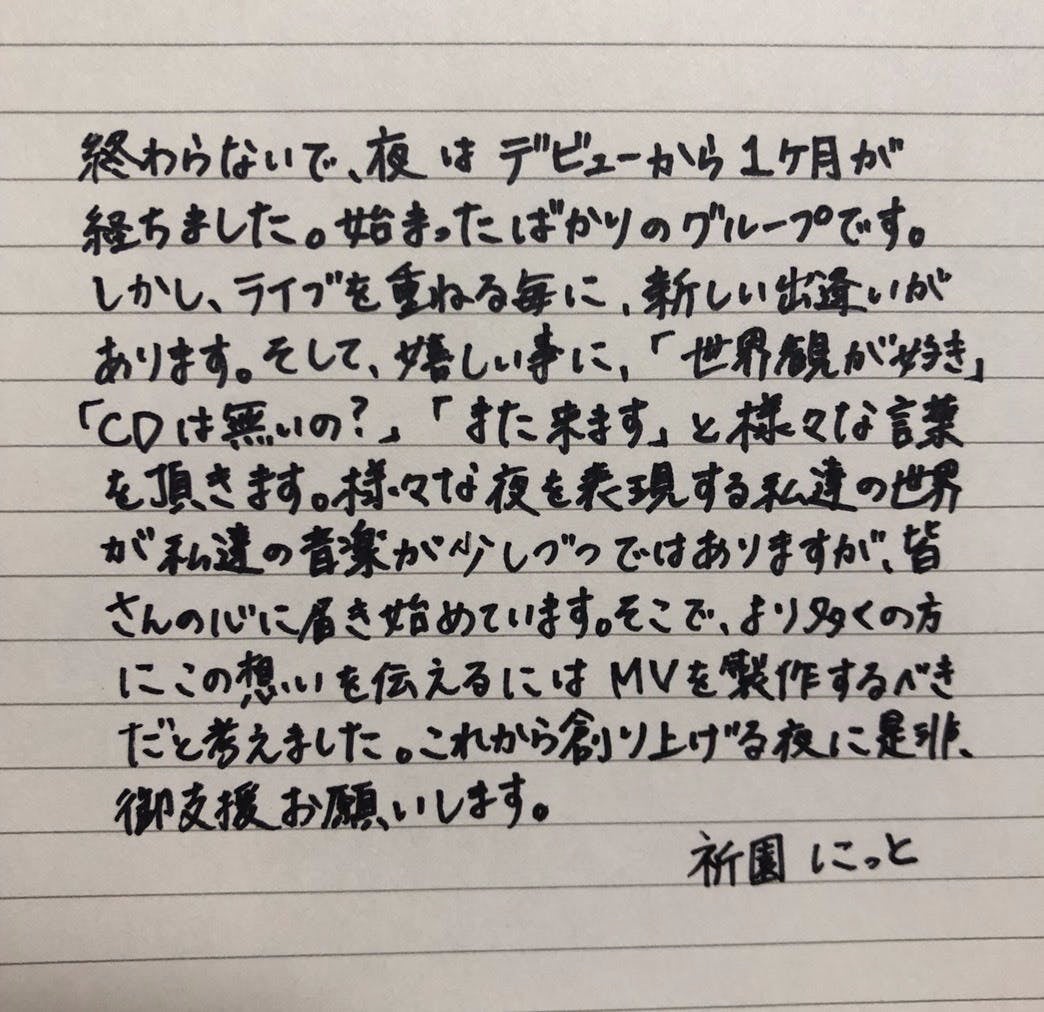 終わらないで、夜はデビューから1ケ月が
経ちました。始まったばかりのグループです。
しかし、ライブを重ねる毎に、新しい出逢いが
あります。そして、嬉しい事に、「世界観が好き」
「CDは無いの?」「また来ます」と様々な言葉
を頂きます。様々な夜を表現する私達の世界
が私達の音楽が少しづつではありますが、皆
さんの心に届き始めています。そこで、より多くの方
にこの想いを伝えるにはMVを製作するべき
だと考えました。これから創り上げる夜に是非、
御支援お願いします。
祈園にっと